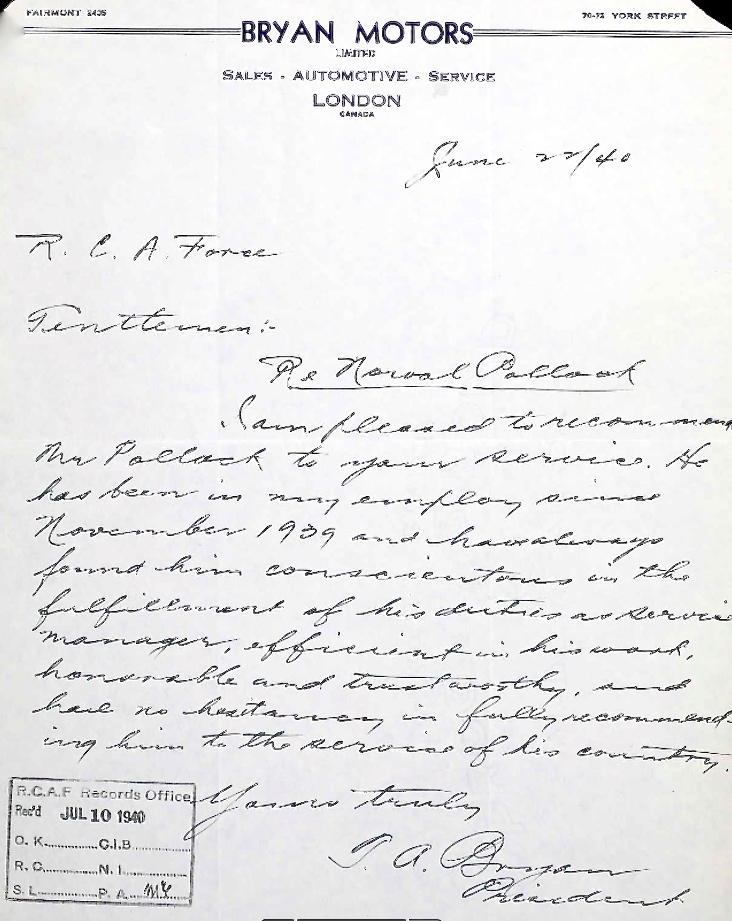 FAIRMONT 2435
70-72 YORK STREET
BRYAN MOTORS
LIMITED
SALES - AUTOMOTIVE - SERVICE
LONDON
CANADA
June 22/40
R. C. A. Force
Gentlemen:-
Re Norval Pollock
I am pleased to recommend
Mr Pollock to your service. He
has been in my employ since
November 1939 and have always
found him conscientous in the
fulfillment of his duties as service
manager, efficient in his work,
honorable and trustworthy, and
have no hesitancy in fully recommend-
ing him to the service of his country.
Yours truly
T. A. Bryan
President
R.C.A.F Records Office
Rec'd JUL 10 1940
O. K. C.I.B.
R. C. N. I.
S. L. P. A.